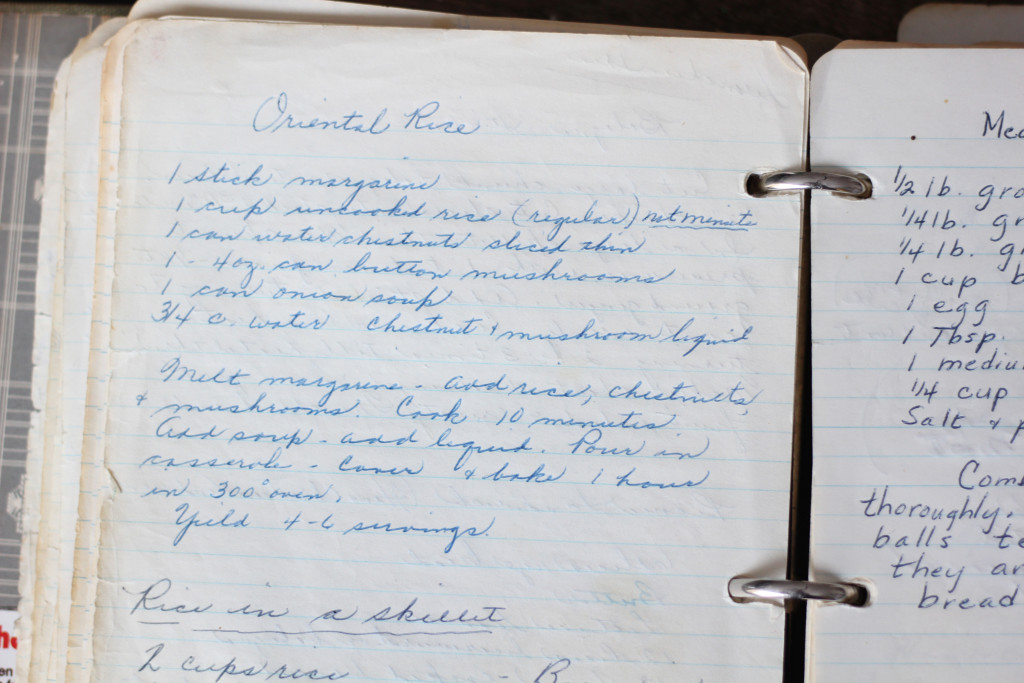 Oriental Rice
1 stick margarine
1 cup uncooked rice (regular) not minute
1 can water chestnuts sliced thin
1 - 4oz. can button mushrooms
1 can onion soup
3/4 c. water chestnut & mushroom liquid
Melt margarine - add rice, chestnuts,
& mushrooms. Cook 10 minutes
Add soup - add liquid. Pour in
casserole - Cover & bake 1 hour
in 300° oven.
Yield 4-6 servings.
Rice in a skillet
2 cups rice - B
Mea
1/2 lb. gro
1/4 lb. gr
1/4 lb. gr
1 cup b
1 egg
1 Tbsp.
1 mediu
1/4 cup
Salt & p
Com
thoroughly.
balls te
they ar
bread